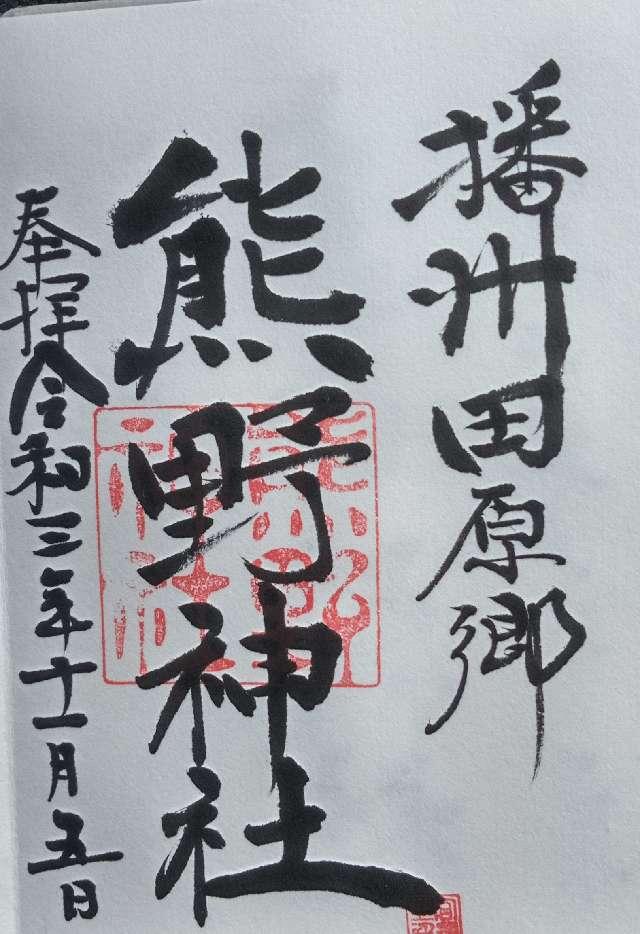 播州田原郷
熊野神社
奉拝令和三年十一月五日
熊野神社